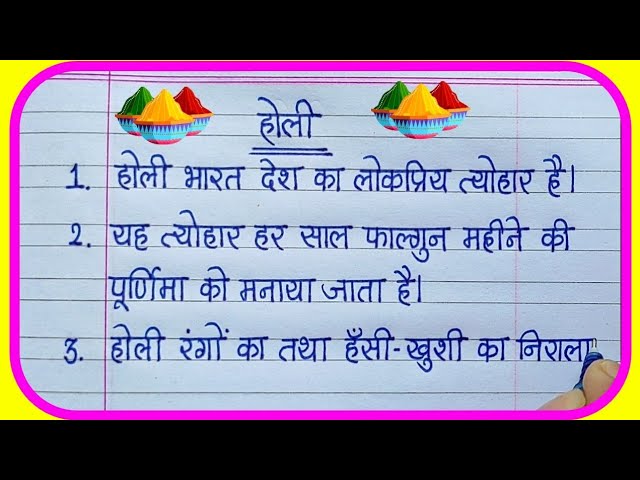 होली
1. होली भारत देश का लोकप्रिय त्योहार है।
2. यह त्योहार हर साल फाल्गुन महीने की
पूर्णिमा को मनाया जाता है।
3. होली रंगों का तथा हँसी-खुशी का निराला